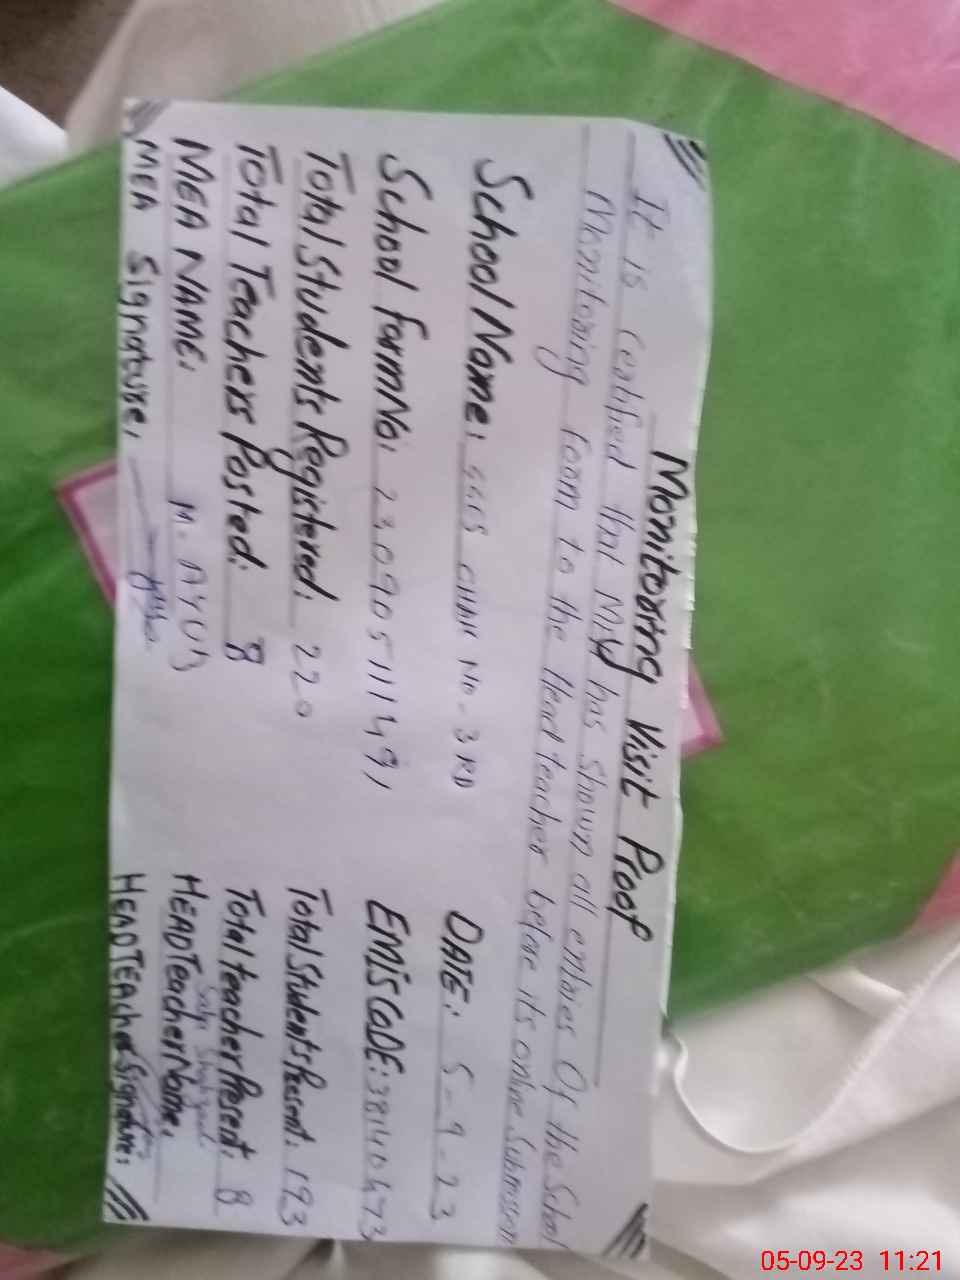 Monitoring Visit Proof
It is certified that My has shown all entries Of the School
Monitoring form to the Head teacher before it's online Submission
School Name: GGCS CHAK No - 3 RD DATE: 5-9-23
School Form No: 23090511491 EMIS CODE: 38140473
Total Students Registered: 220 Total Students Present: 193
Total Teachers Posted: 8 Total teacher Present: 8
MEA NAME: M. AYUB HEAD Teacher Name:
MEA Signature: HEAD TEACHER Signature:
05-09-23 11:21